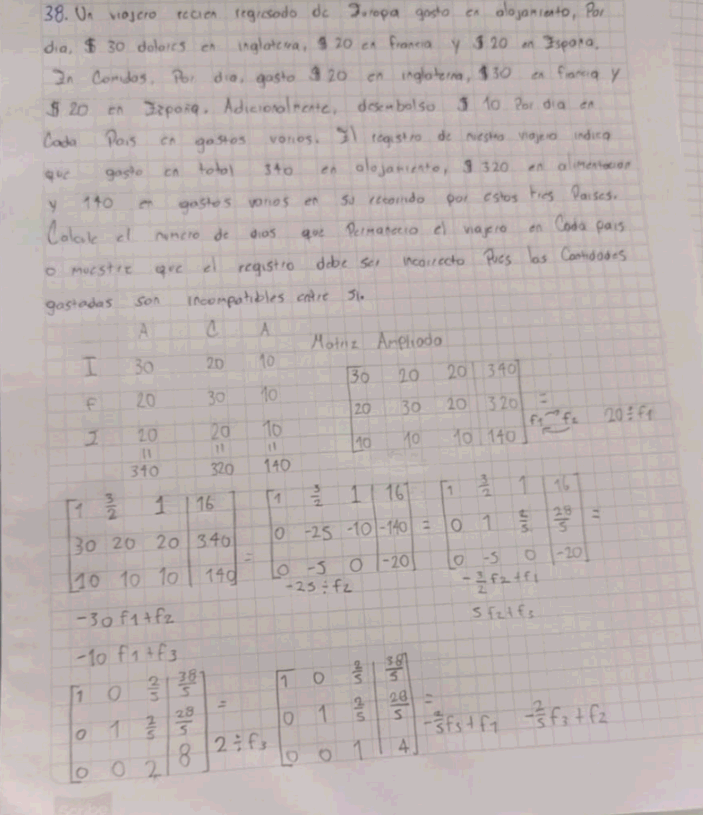 38. Un viajero recien regresado de Europa gasto en alojamiento, Por
dia, $ 30 dolares en inglaterra, $ 20 en francia y $ 20 en España,
En Comidas, Por dia, gasto $ 20 en inglaterra, $ 30 en francia y
$ 20 en España. Adicionalmente, desembolso $ 10 Por dia en
Cada Pais en gastos varios. El registro de nuestro viajero indica
que gasto en total 340 en alojamiento, $ 320 en alimentacion
y 140 en gastos varios en su recorrido por estos tres Paises.
Calcule el numero de dias que Permanecio el viajero en Cada pais
o muestre que el registro debe ser incorrecto Pues las Cantidades
gastadas son incompatibles entre si.
A C A Matriz Ampliada
I 30 20 10
F 20 30 10
I 20 20 10
|| || ||
340 320 140
[30 20 20 | 340]
[20 30 20 | 320] =
[10 10 10 | 140] f1 f2 20÷f1
[1 3/2 1 | 16]
[30 20 20 | 340] =
[10 10 10 | 140]
-30 f1+f2
-10 f1+f3
[1 3/2 1 | 16]
[0 -25 -10 | -140] =
[0 -5 0 | -20]
-25÷f2
[1 3/2 1 | 16]
[0 1 2/5 | 28/5] =
[0 -5 0 | -20]
-3/2 f2+f1
5f2+f3
[1 0 2/5 | 38/5] =
[0 1 2/5 | 28/5]
[0 0 2 | 8] 2÷f3
[1 0 2/5 | 38/5] =
[0 1 2/5 | 28/5]
[0 0 1 | 4]
-2/5f3+f1 -2/5f3+f2